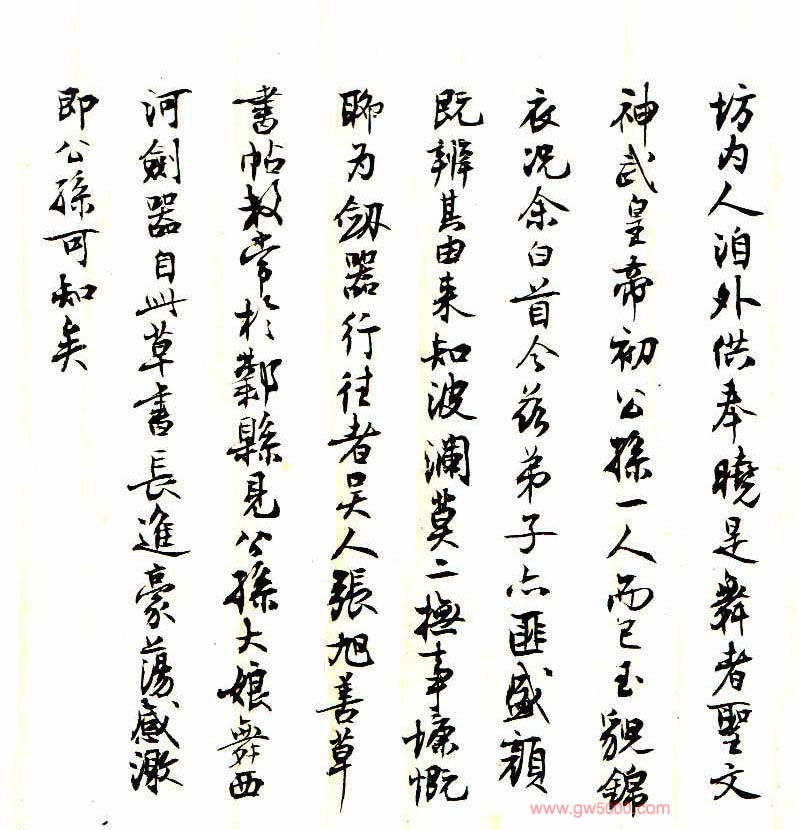 坊内人洎外供奉曉是舞者聖文
神武皇帝初公孫一人而已玉貌錦
衣況余白首今茲弟子亦匪盛顏
既辨其由来知波瀾莫二撫事慷慨
聊为劒器行往者吴人張旭善草
書帖數常於鄴縣見公孫大娘舞西
河劍器自此草書長進豪蕩感激
即公孫可知矣
www.gw5000.com